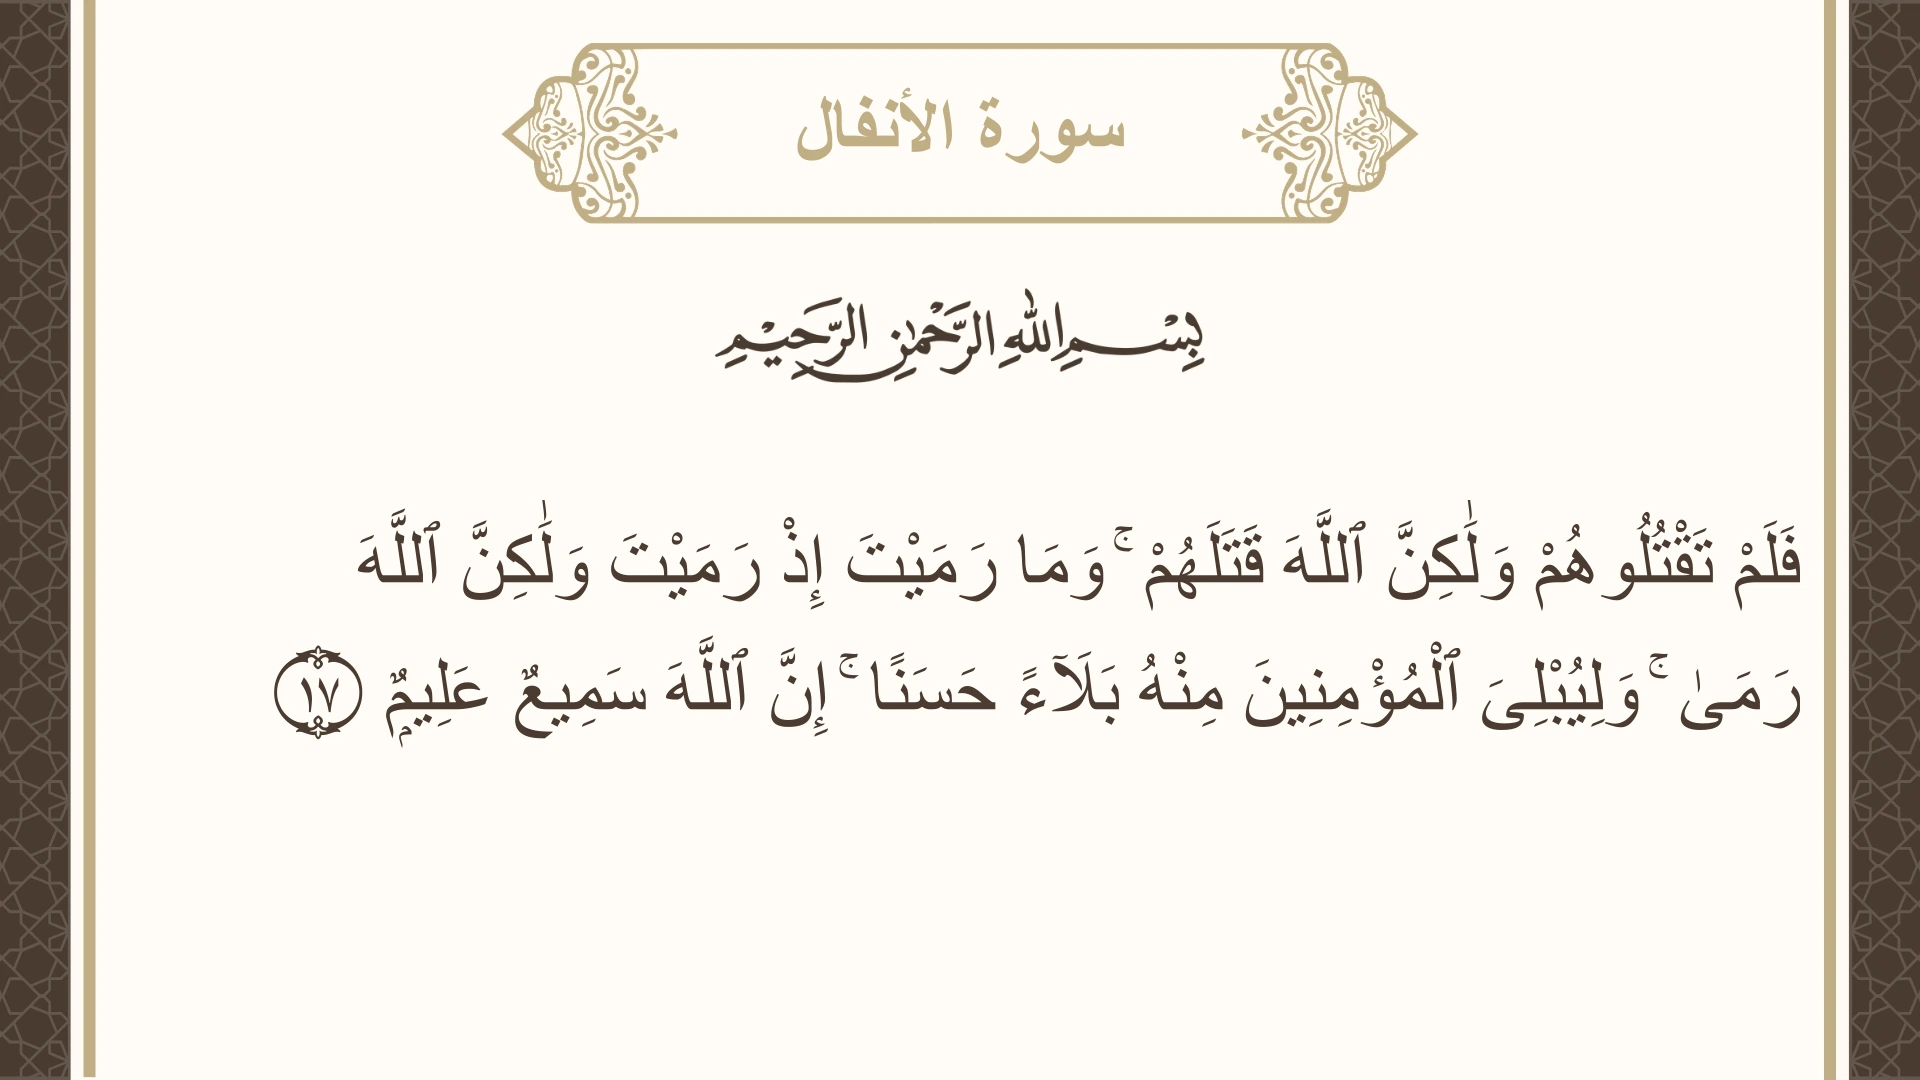 سورة الأنفال
بِسْمِ اللهِ الرَّحْمٰنِ الرَّحِيْمِ
فَلَمْ تَقْتُلُوهُمْ وَلَٰكِنَّ ٱللَّهَ قَتَلَهُمْ ۚ وَمَا رَمَيْتَ إِذْ رَمَيْتَ وَلَٰكِنَّ ٱللَّهَ
رَمَىٰ ۚ وَلِيُبْلِىَ ٱلْمُؤْمِنِينَ مِنْهُ بَلَآءً حَسَنًا ۚ إِنَّ ٱللَّهَ سَمِيعٌ عَلِيمٌۭ ١٧